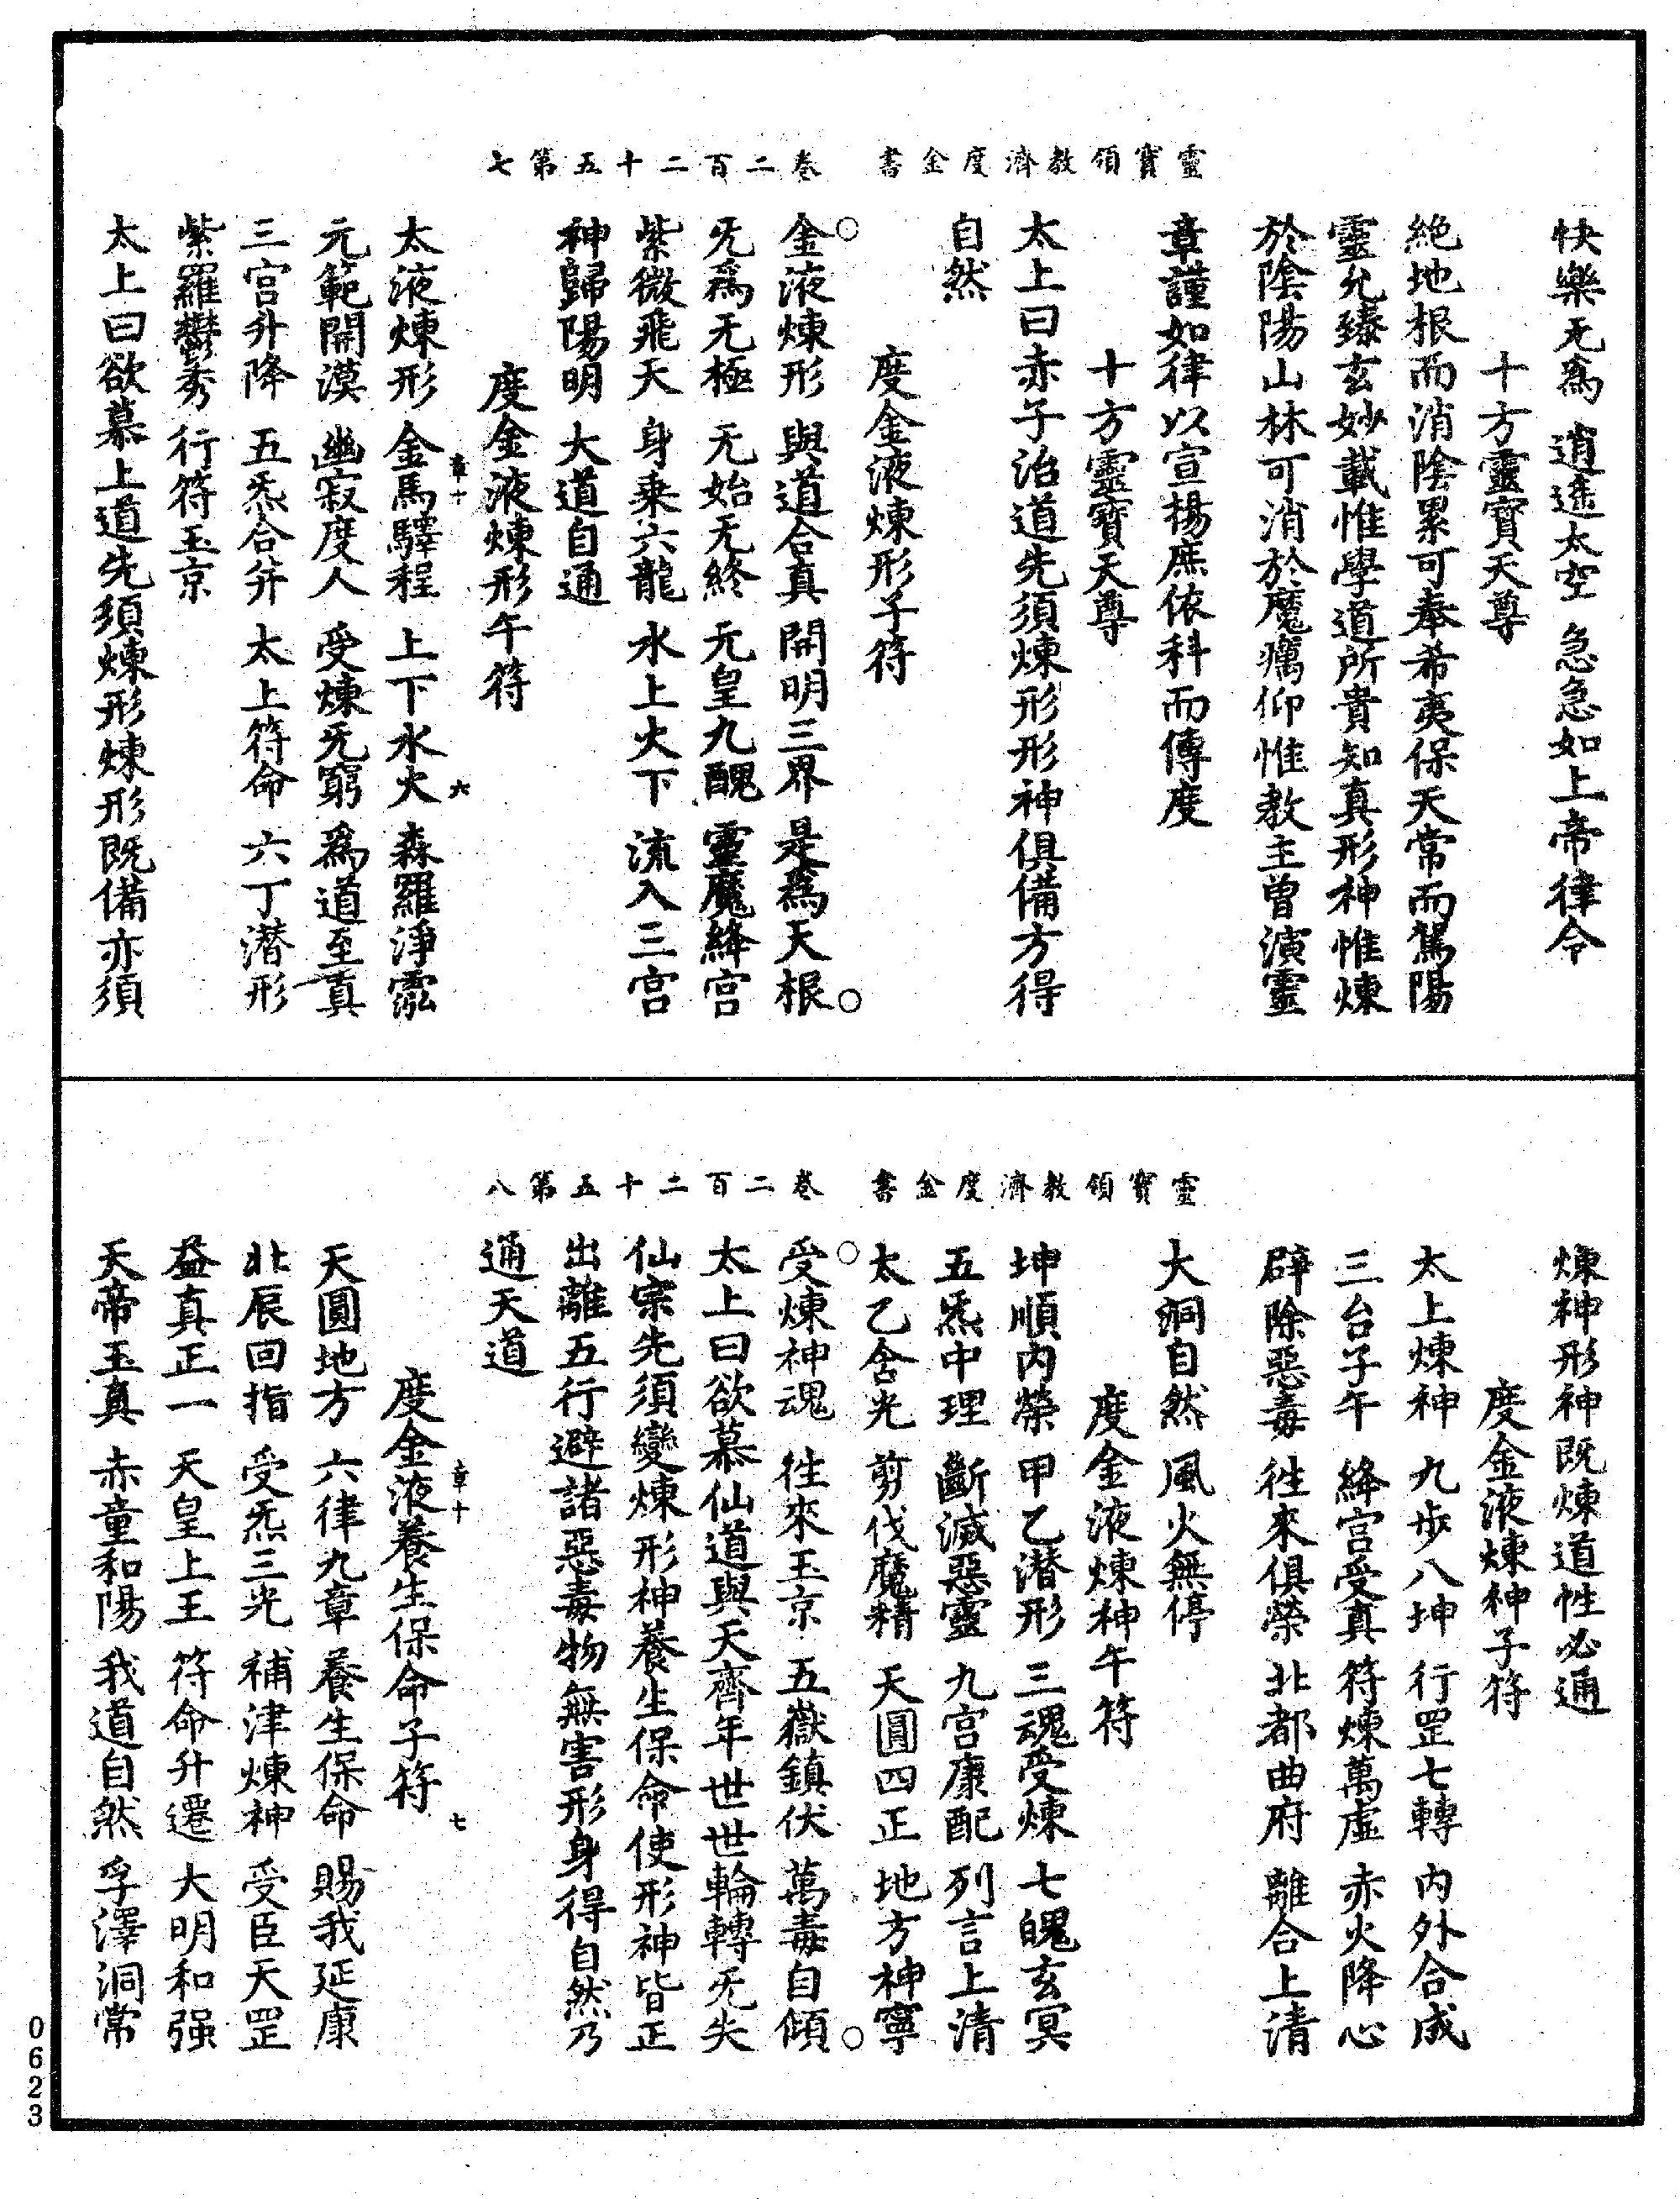 靈寶領教濟度金書　卷二百二十五第七
快樂无爲　逍遙太空　急急如上帝律令
十方靈寶天尊
絶地根而消陰累可奉希夷保天常而駕陽
靈允臻玄妙載惟學道所貴知真形神惟煉
於陰陽山林可消於魔癘仰惟教主曾演靈
章謹如律以宣揚庶依科而傳度
十方靈寶天尊
太上曰赤子治道先須煉形形神俱備方得
自然
度金液煉形子符
金液煉形　與道合真　開明三界　是爲天根
旡爲无極　无始无終　元皇九醜　靈魔絳宮
紫微飛天　身乗六龍　水上火下　流入三宮
神歸陽明　大道自通
度金液煉形午符
章十　六
太液煉形　金馬驛程　上下水火　森羅淨霐
元範開漠　幽寂度人　受煉旡窮　爲道至真
三宮升降　五炁合并　太上符命　六丁潛形
紫羅鬱秀　行符玉京
太上曰欲慕上道先須煉形煉形既備亦須
靈寶領教濟度金書　卷二百二十五第八
煉神形神既煉道性必通
度金液煉神子符
太上煉神　九步八坤　行罡七轉　内外合成
三台子午　絳宮受真　符煉萬虛　赤火降心
辟除惡毒　徃來俱榮　北都曲府　離合上清
大洞自然　風火無停
度金液煉神午符
坤順内榮　甲乙潛形　三魂受煉　七魄玄冥
五炁中理　斷滅惡靈　九宮康配　列言上清
太乙含光　剪伐魔精　天圓四正　地方神寧
受煉神魂　徃來玉京　五嶽鎮伏　萬毒自傾
太上曰欲慕仙道與天齊年世世輪轉旡失
仙宗先須變煉形神養生保命使形神皆正
出離五行避諸惡毒物無害形身得自然乃
通天道
度金液養生保命子符
章十　七
天圓地方　六律九章　養生保命　賜我延康
北辰回指　受炁三光　補津煉神　受臣天罡
益真正一　天皇上王　符命升遷　大明和强
天帝玉真　赤童和陽　我道自然　孚澤洞常
0623